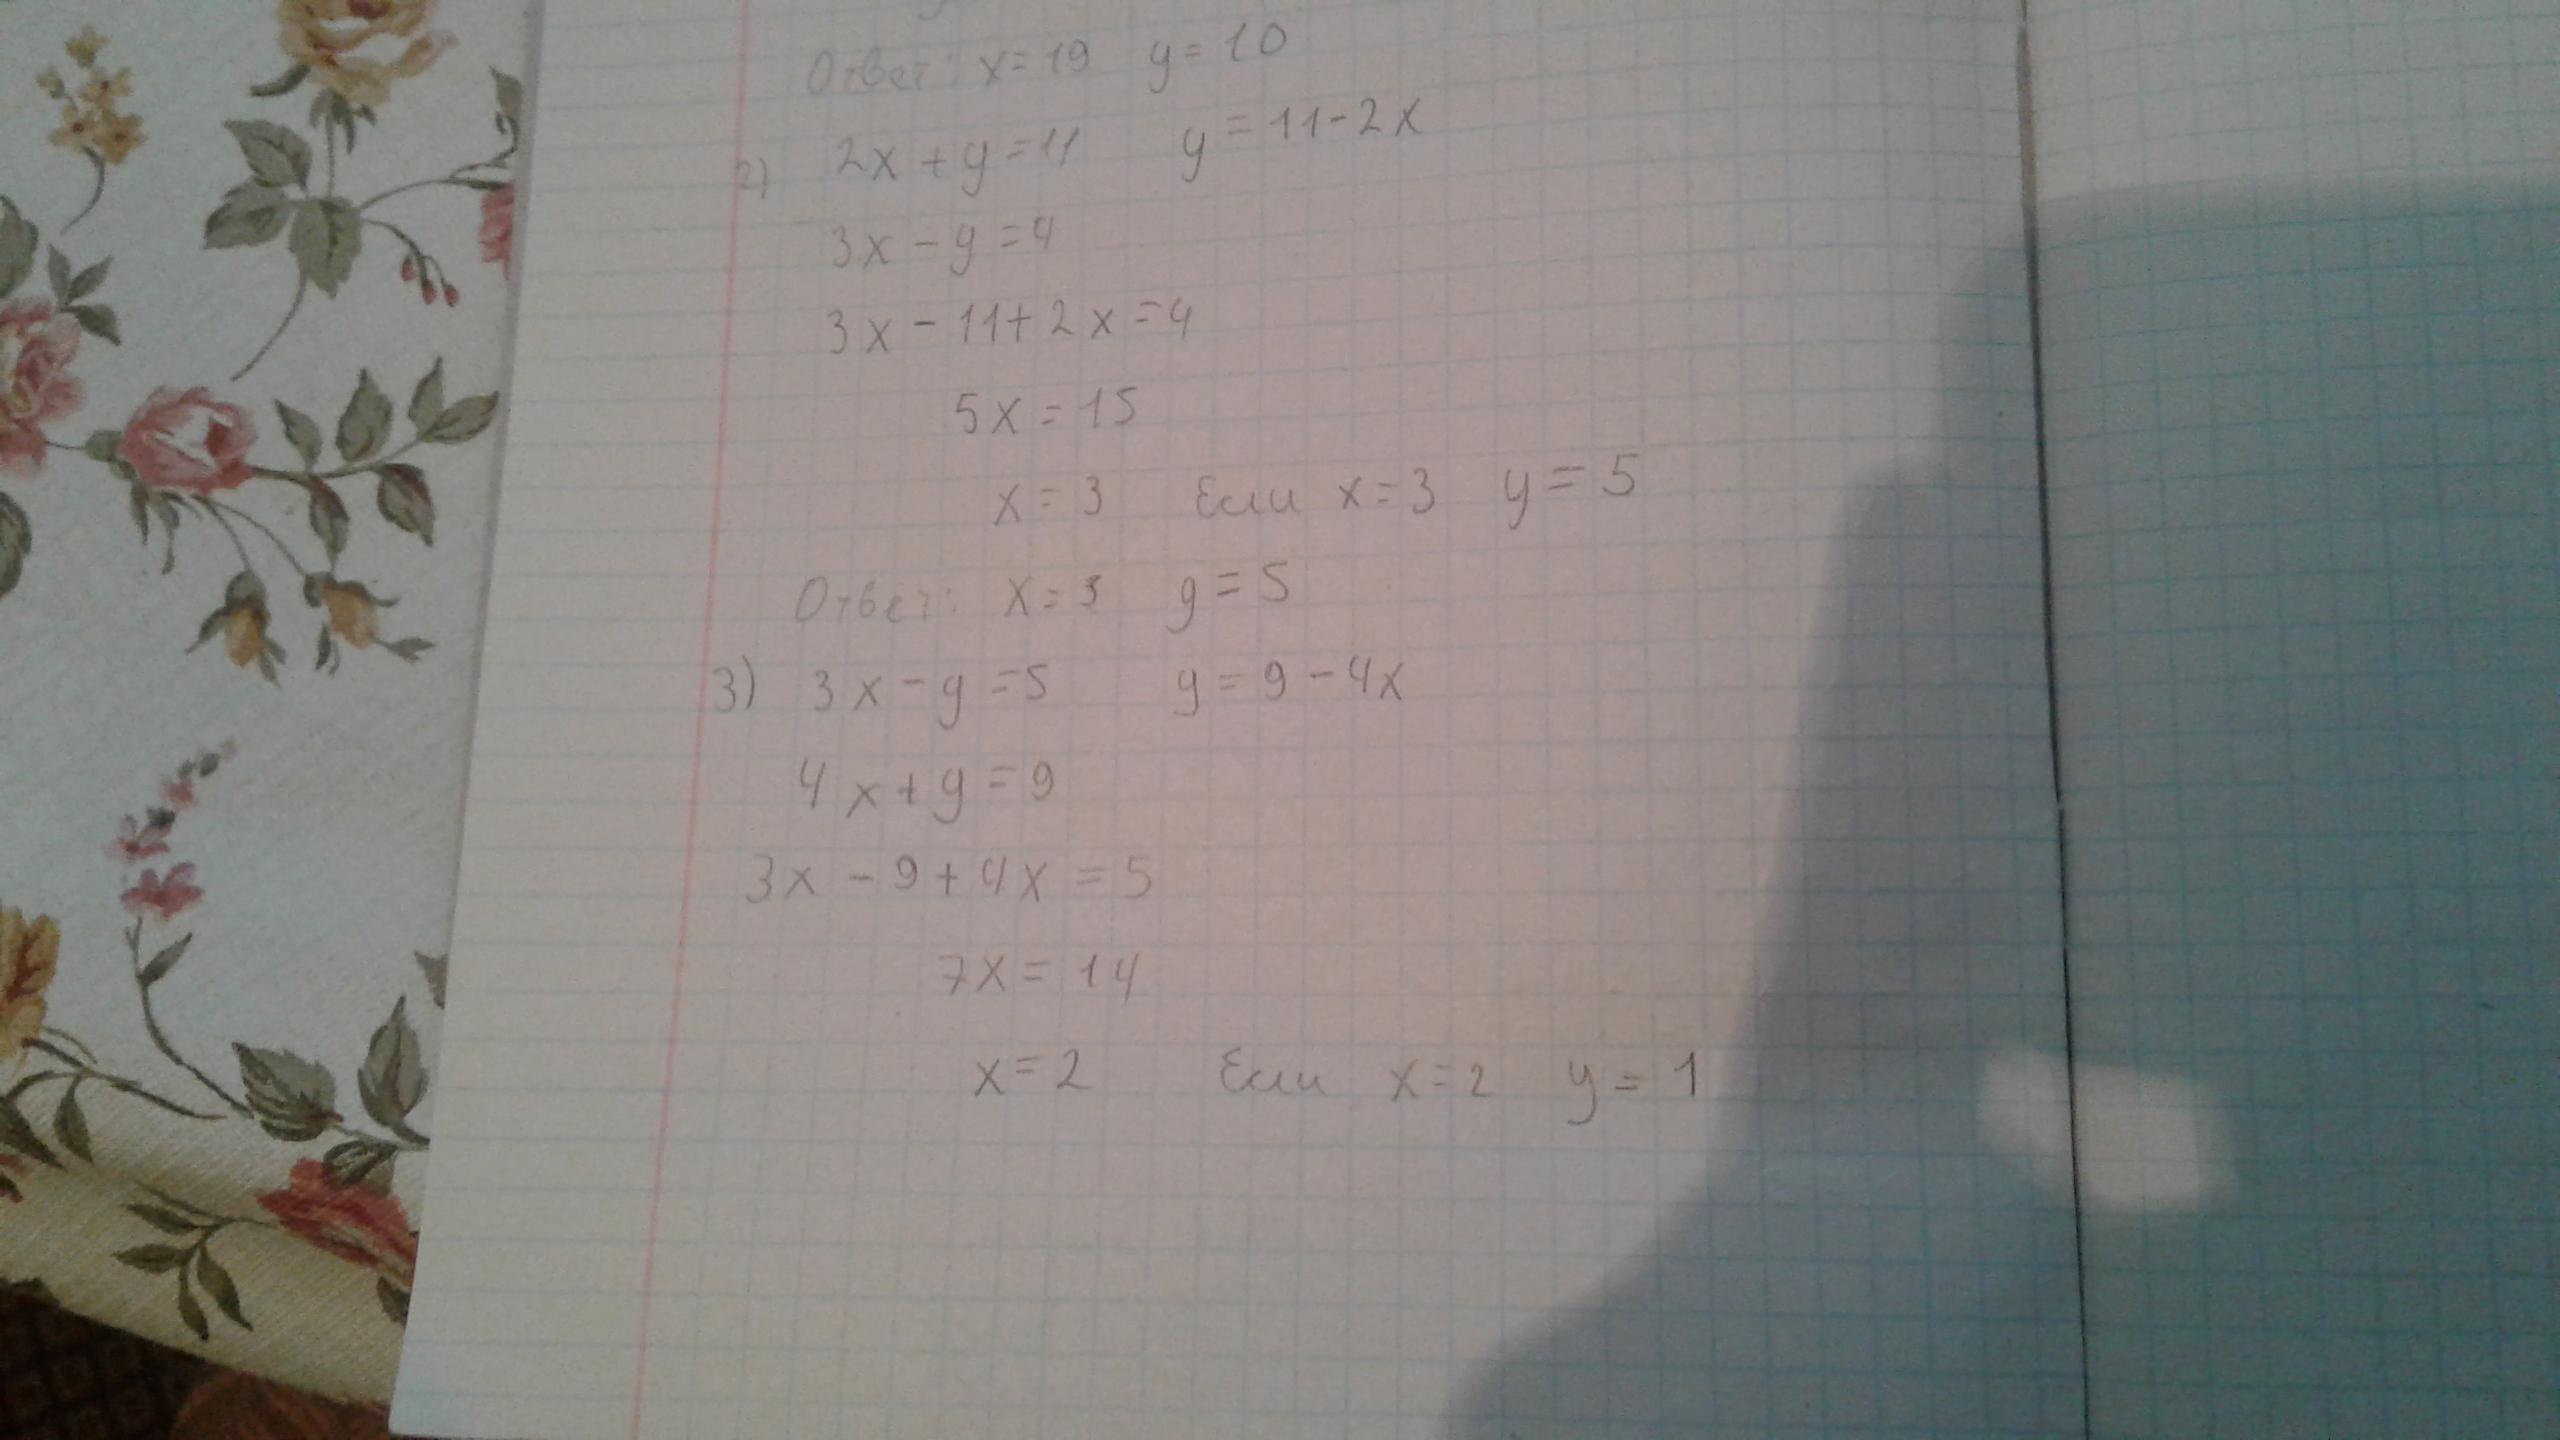 Ответ: x=19 y=10
2) 2x+y=11 y=11-2x
3x-y=4
3x-11+2x=4
5x=15
x=3 Если x=3 y=5
Ответ: x=3 y=5
3) 3x-y=5 y=9-4x
4x+y=9
3x-9+4x=5
7x=14
x=2 Если x=2 y=1